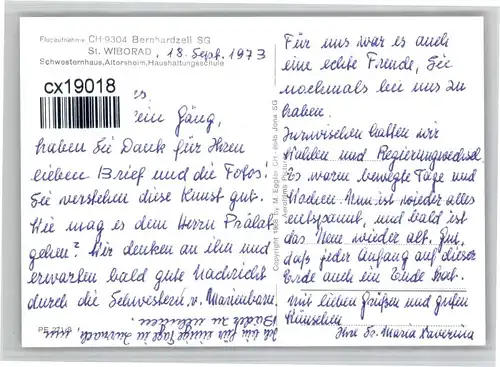 Flugaufnahme CH-9304 Bernhardzell SG
St. WIBORAD, 18. Sept. 1973
Schwesternhaus, Altersheim, Haushaltungsschule
cx19018
es
ein Gäng,
haben Sie Dank für Ihren
lieben Brief und die Fotos.
Sie verstehen diese Kunst gut.
Wie mag es dem Herrn Prälat
gehen? Wir denken an ihn und
erwarten bald gute Nachricht
durch die Schwestern v. Marienborn.
PE 271/9
Ich bin für einige Tage in um
Bäder zu nehmen.
Copyright 1968 by M. Eggler CH - 8645 Jona SG
Für uns war es auch
eine echte Freude, Sie
nochmals bei uns zu
haben.
Inzwischen hatten wir
Wahlen und Regierungwechsel.
Es waren bewegte Tage und
Wochen. Nun ist wieder alles
entspannt, und bald ist
das Neue wieder alt. Gut,
daß jeder Anfang auf dieser
Erde auch ein Ende hat.
Mit lieben Grüßen und guten
Wünschen
Ihre Sr. Maria Xaverina